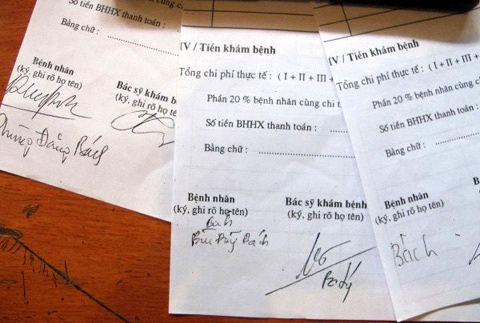 Số tiền BHHX thanh toán :
Bằng chữ :
Bệnh nhân
(ký, ghi rõ họ tên)
Bác sỹ khám b
(ký, ghi rõ họ
Phùng Đăng Bách
IV / Tiền khám bệnh
Tổng chi phí thực tế : ( I + II + III +
Phần 20 % bệnh nhân cùng chi t
Số tiền BHHX thanh toán :
Bằng chữ :
Bệnh nhân
(ký, ghi rõ họ tên)
Bách
Bác sỹ khám bệnh
(ký, ghi rõ họ tên)
IV / Tiền khám bệnh
Tổng chi phí thực tế : ( I + II
Phần 20 % bệnh nhân c
Số tiền BHHX thanh toán
Bằng chữ :
Bệnh nhân
(ký, ghi rõ họ tên)
Bách
Bác sỹ
(ký, gh